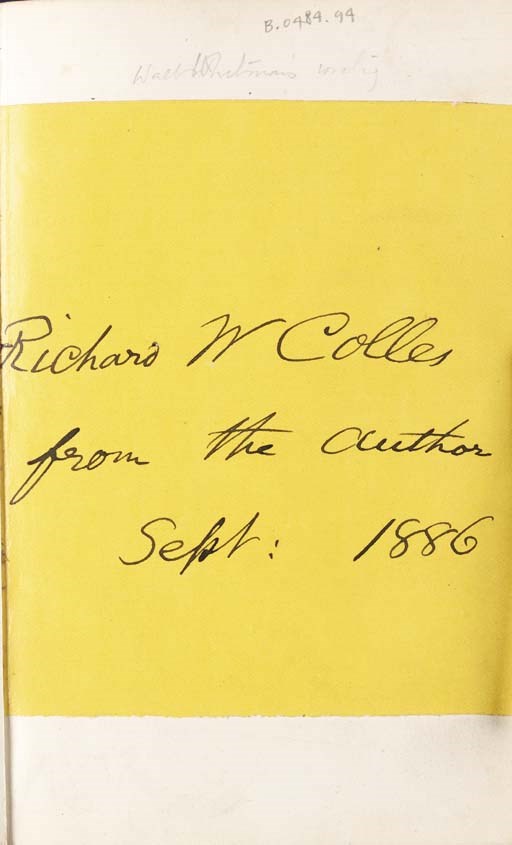 B.0484.94
Walt Whitman's writing
Richard W Colles
from the author
Sept: 1886